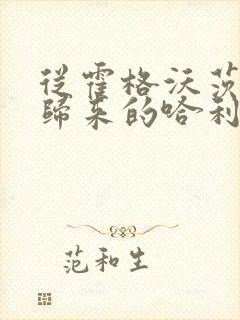 從霍格沃茨
歸來的哈利
范和生